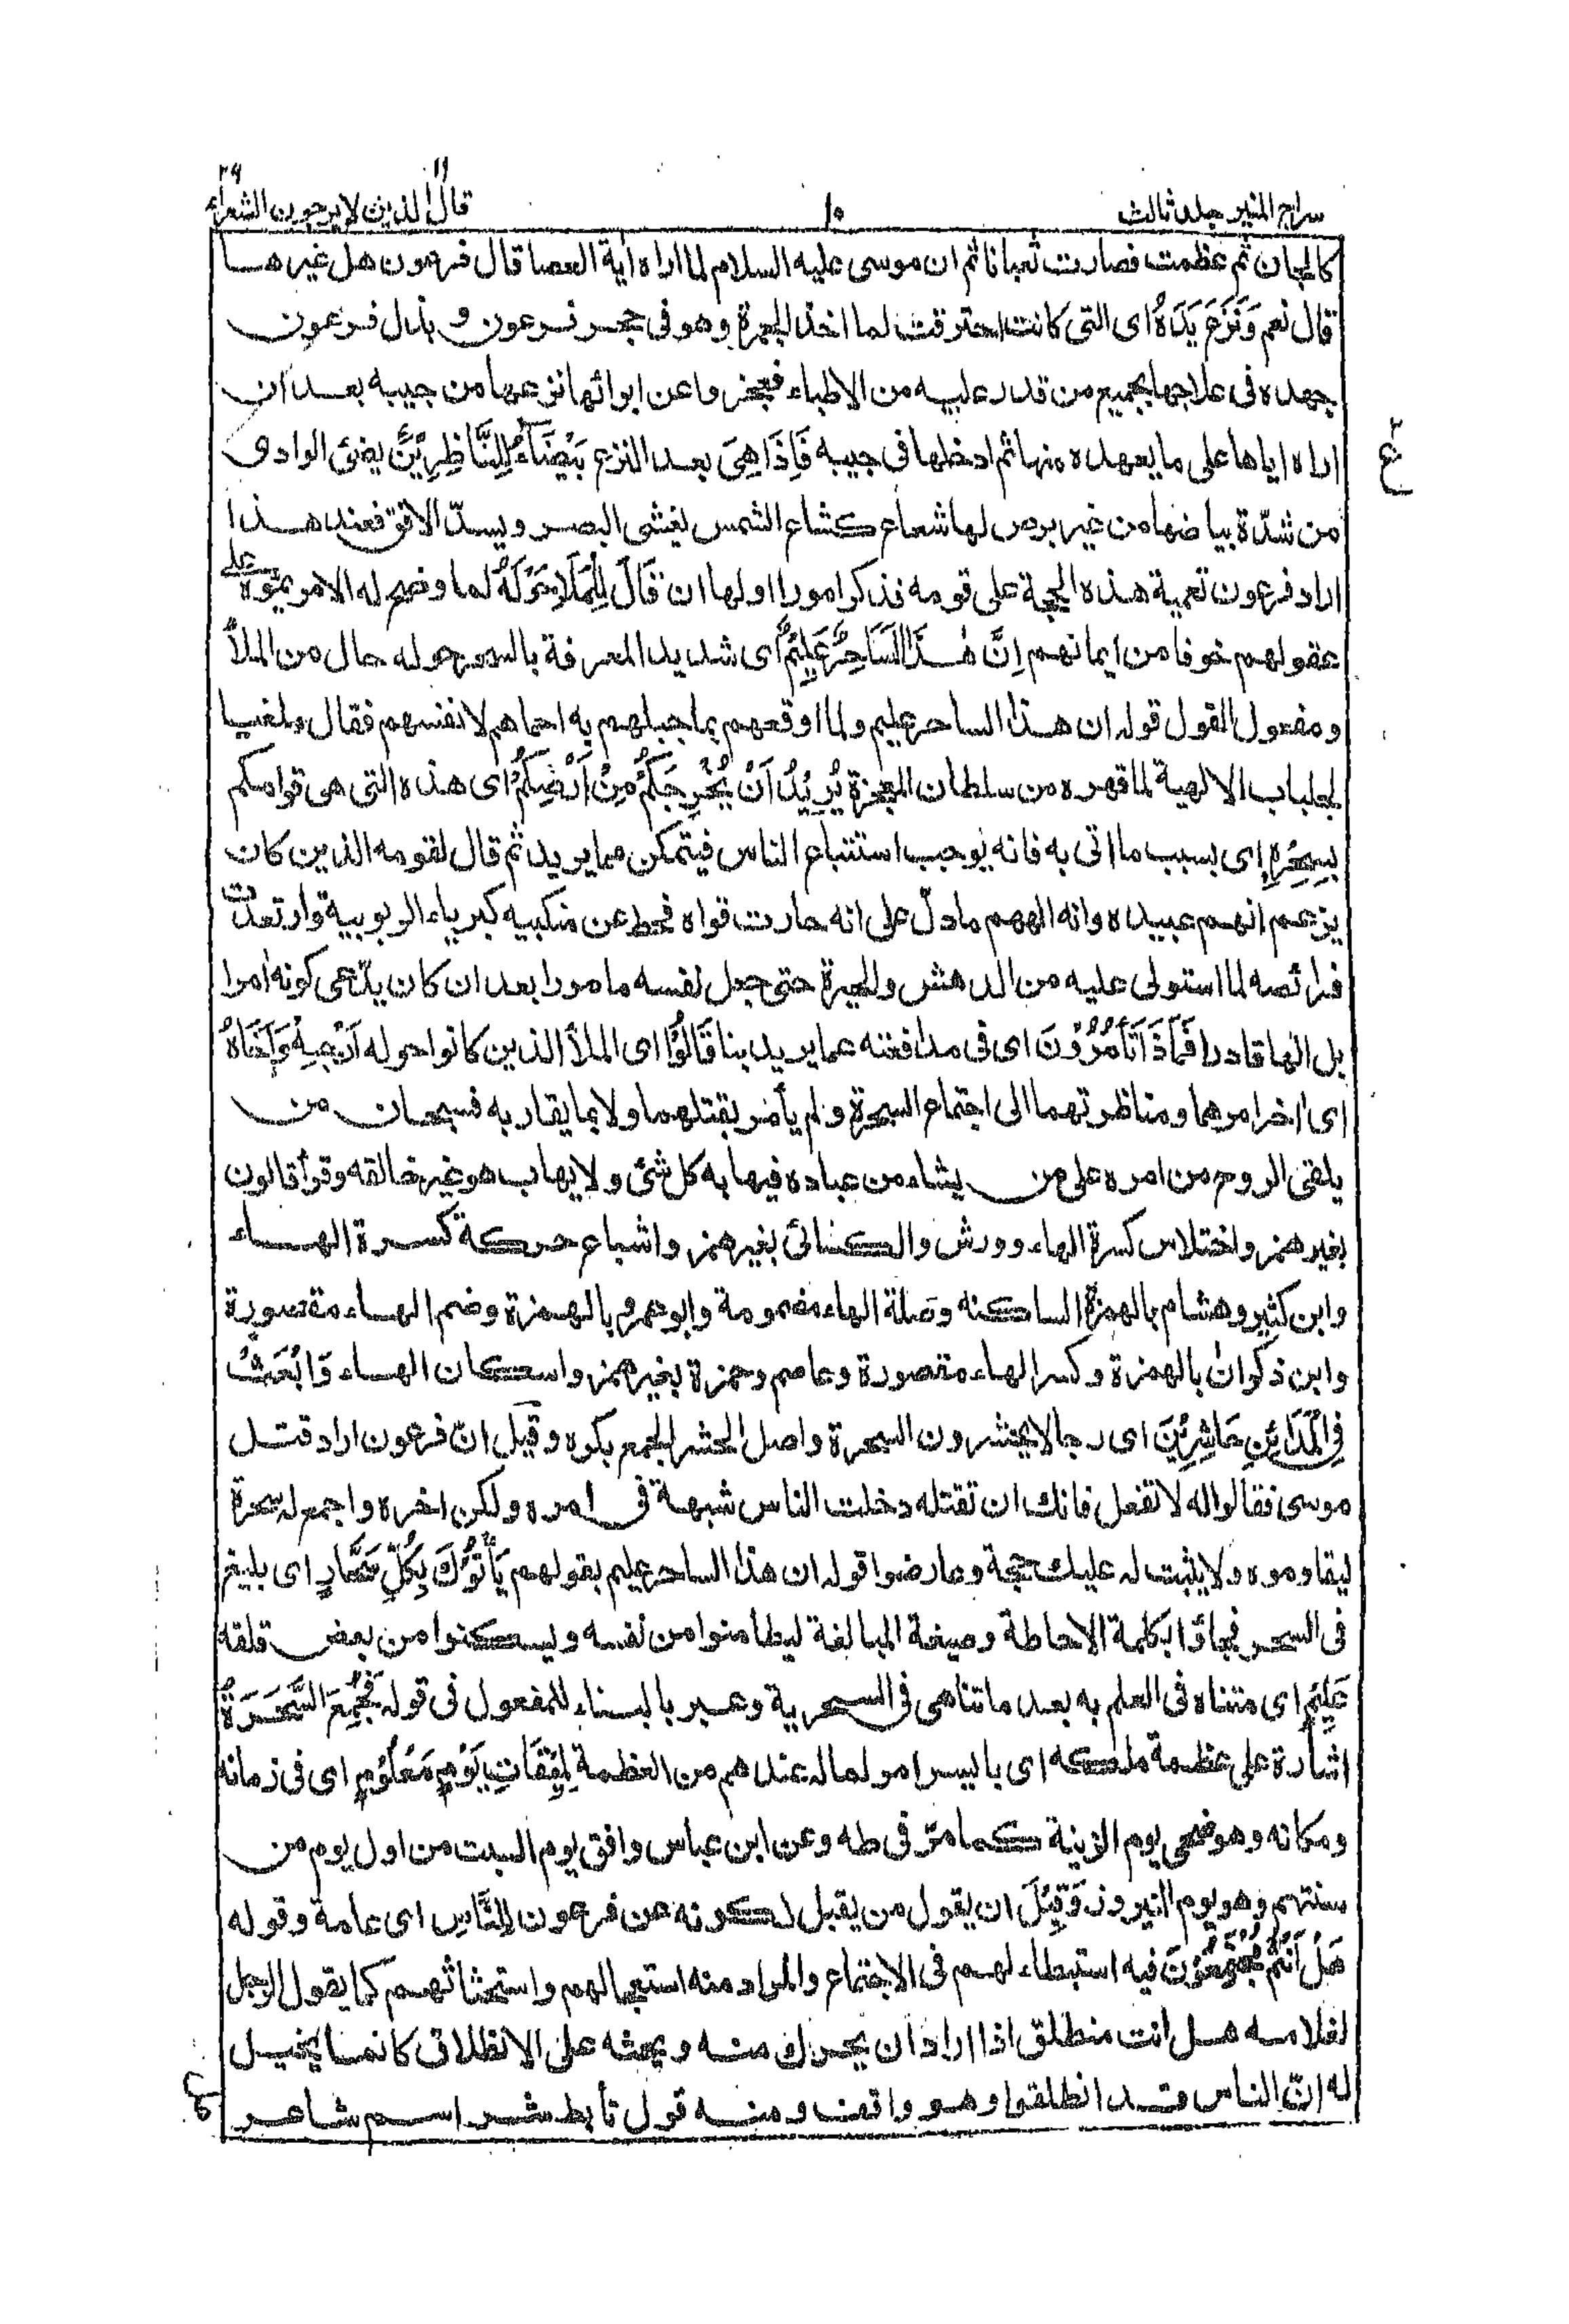 سراج المنير جلد ثالث
١٠
قال الذين لا يرجون الشعراء
١٩
٢٦
كالجان ثم عظمت فصارت ثعبانا ثم ان موسى عليه السلام لما اراه اٰية العصا قال فرعون هل غير هـا
قال نعم وَنَزَعَ يَدَهُ اى التى كانت احترقت لما اخذ الجمرة وهو فى حجر فرعون و بذل فرعون
جهده فى علاجها بجميع من قدر عليه من الاطباء فعجزوا عن ابرائها نزعها من جيبه بعد ان
اراه اياها على ما يعهده منها ثم ادخلها فى جيبه فَاِذَا هِىَ بعد النزع بَيْضَآءُ لِلنَّاظِرِيْنَ يضئ الوادى
من شدّة بياضها من غير برص لها شعاع كشعاع الشمس يغشى البصر ويسدّ الافق فعند هـذا
اراد فرعون تعمية هذه الحجة على قومه فذكر امورا اولها ان قَالَ لِلْمَلَاِ حَوْلَهٗ لما وضح له الامر يموّه على
عقولهم خوفا من ايمانهم اِنَّ هٰـذَا لَسَاحِرٌ عَلِيْمٌ اى شديد المعرفة بالسحر حوله حال من الملأ
ومفعول القول قوله ان هذا الساحر عليم ولما اوقعهم بما خيلهم به احماهم لانفسهم فقال ملغيا
لجلباب الالٰهية لما قهره من سلطان المعجزة يُرِيْدُ اَنْ يُّخْرِجَكُمْ مِّنْ اَرْضِكُمْ اى هذه التى هى قوامكم
بِسِحْرِهٖ اى بسبب ما اتى به فانه يوجب استتباع الناس فيتمكن مما يريد ثم قال لقومه الذين كان
يزعم انهم عبيده وانه الٰههم ما دلّ على انه حارت قواه فحط عن منكبيه كبرياء الربوبية وارتعدت
فرائصه لما استولى عليه من الدهش والحيرة حتى جعل نفسه مامورا بعد ان كان يدّعى كونه اٰمرا
بل الٰها قادرا فَمَا ذَا تَأْمُرُوْنَ اى فى مدافعته عما يريد بنا قَالُوْٓا اى الملأ الذين كانوا حوله اَرْجِهْ وَاَخَاهُ
اى اخر امرهما ومناظرتهما الى اجتماع السحرة ولم يأمر بقتلهما ولا بما يقاربه فسبحان من
يلقى الروح من امره على من يشاء من عباده فيهابه كل شئ ولا يهاب هو غير خالقه وقرأ قالون
بغير همز واختلاس كسرة الهاء وورش والكسائى بغير همز واشباع حركة كسرة الهـاء
وابن كثير وهشام بالهمزة الساكنه وصلة الهاء مضمومة وابو عمرو بالهمزة وضم الهاء مقصورة
وابن ذكوان بالهمزة وكسر الهاء مقصورة وعاصم وحمزة بغير همز واسكان الهـاء وَابْعَثْ
فِى الْمَدَآئِنِ حَاشِرِيْنَ اى رجالا يحشرون السحرة واصل الحشر الجمع بكره وقيل انّ فرعون اراد قتل
موسى فقالوا له لا تفعل فانك ان تقتله دخلت الناس شبهة فى امره ولكن اخره واجمع له سحرة
ليقاوموه ولا يثبت له عليك حجة وعارضوا قوله ان هذا الساحر عليم بقولهم يَأْتُوْكَ بِكُلِّ سَحَّارٍ اى بليغ
فى السحر فجاؤا بكلمة الاحاطة وصيغة المبالغة ليطامنوا من نفسه وليسكنوا من بعض قلقه
عَلِيْمٍ اى متناه فى العلم به بعد ما تناهى فى السحرية وعبر بالبناء للمفعول فى قوله فَجُمِعَ السَّحَرَةُ
اشارة على عظمة ملكه اى بايسر امر لما له عندهم من العظمة لِمِيْقَاتِ يَوْمٍ مَّعْلُوْمٍ اى فى زمانه
ومكانه وهو ضحى يوم الزينة كما مرّ فى طه وعن ابن عباس وافق يوم السبت من اول يوم من
سنتهم وهو يوم النيروز وَقِيْلَ ان يقول من يقبل لكونه عن فرعون لِلنَّاسِ اى عامة وقوله
هَلْ اَنْتُمْ مُّجْتَمِعُوْنَ فيه استبطاء لهم فى الاجتماع والمراد منه استعجالهم واستحثاثهم كما يقول الرجل
لغلامه هل انت منطلق اذا اراد ان يحرك منه ويحثه على الانطلاق كانما يخيل
له انّ الناس قد انطلقوا وهو واقف ومنه قول تأبط شرا اسم شاعر
٣
ع